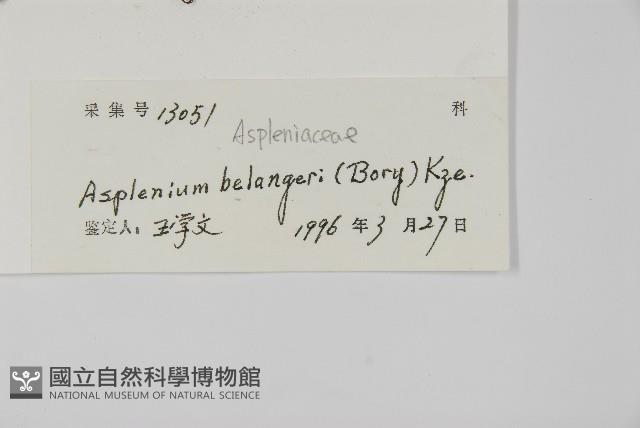 采集号 13051 科
Aspleniaceae
Asplenium belangeri (Bory) Kze.
鉴定人: 王学文 1996 年 3 月 27 日
國立自然科學博物館
NATIONAL MUSEUM OF NATURAL SCIENCE